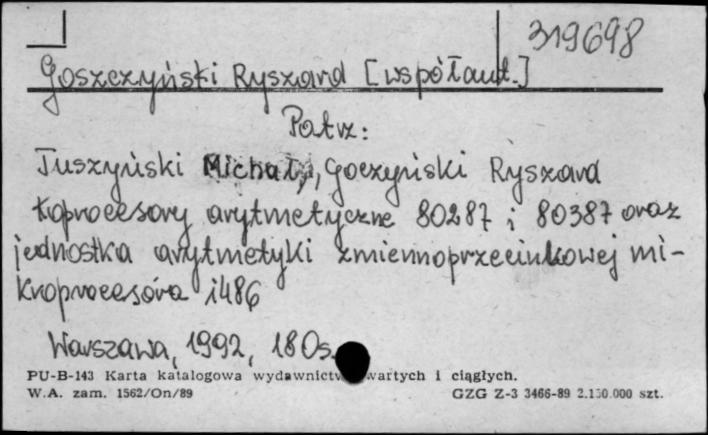 319698
Goszczyński Ryszard [współaut.]
Patrz:
Tuszyński Michał, Goczyński Ryszard
Koprocesory arytmetyczne 80287 i 80387 oraz
jednostka arytmetyki zmiennoprzecinkowej mi-
kroprocesora i486
Warszawa, 1992, 180s.
PU-B-143 Karta katalogowa wydawnictw zwartych i ciągłych.
W.A. zam. 1562/On/89 GZG Z-3 3466-89 2.150.000 szt.